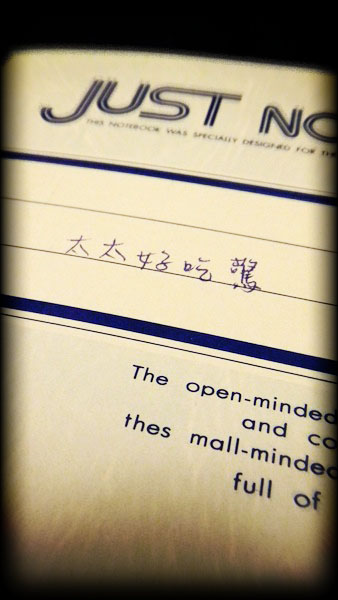 JUST NO
THIS NOTEBOOK WAS SPECIALLY DESIGNED FOR THE
太太好吃驚
The open-minded
and co
thes mall-minded
full of